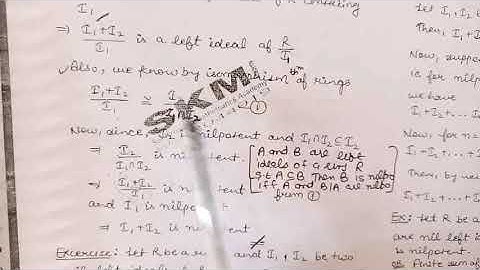 I₁
⇒ I₁+I₂/I₁ is a left ideal of R/I₁
Also, we know by isomorphism thm of rings
I₁+I₂/I₁ ≅ I₂/I₁∩I₂ ①
SKM
Academy
Now, since I₂ is nilpotent and I₁∩I₂⊆I₂
⇒ I₂/I₁∩I₂ is nilpotent.
[A and B are left
ideals of a ring R
s.t A⊆B Then B is nilpo
iff A and B/A are nilpo]
⇒ (I₁+I₂)/I₁ is nilpotent from ①
and I₁ is nilpotent
⇒ I₁+I₂ is nilpotent
Exercise: Let R be a and I₂ be two
Let I₁, I₂ b
Then, I₁+I
Now, suppo
is for nilpo
we have
I₁+I₂+...
Now, for n=
I₁+I₂+...
Then, by
I₁+I₂+...+
Ex: Let R be a
are nil left i
is nilpotent.
Finite sum of